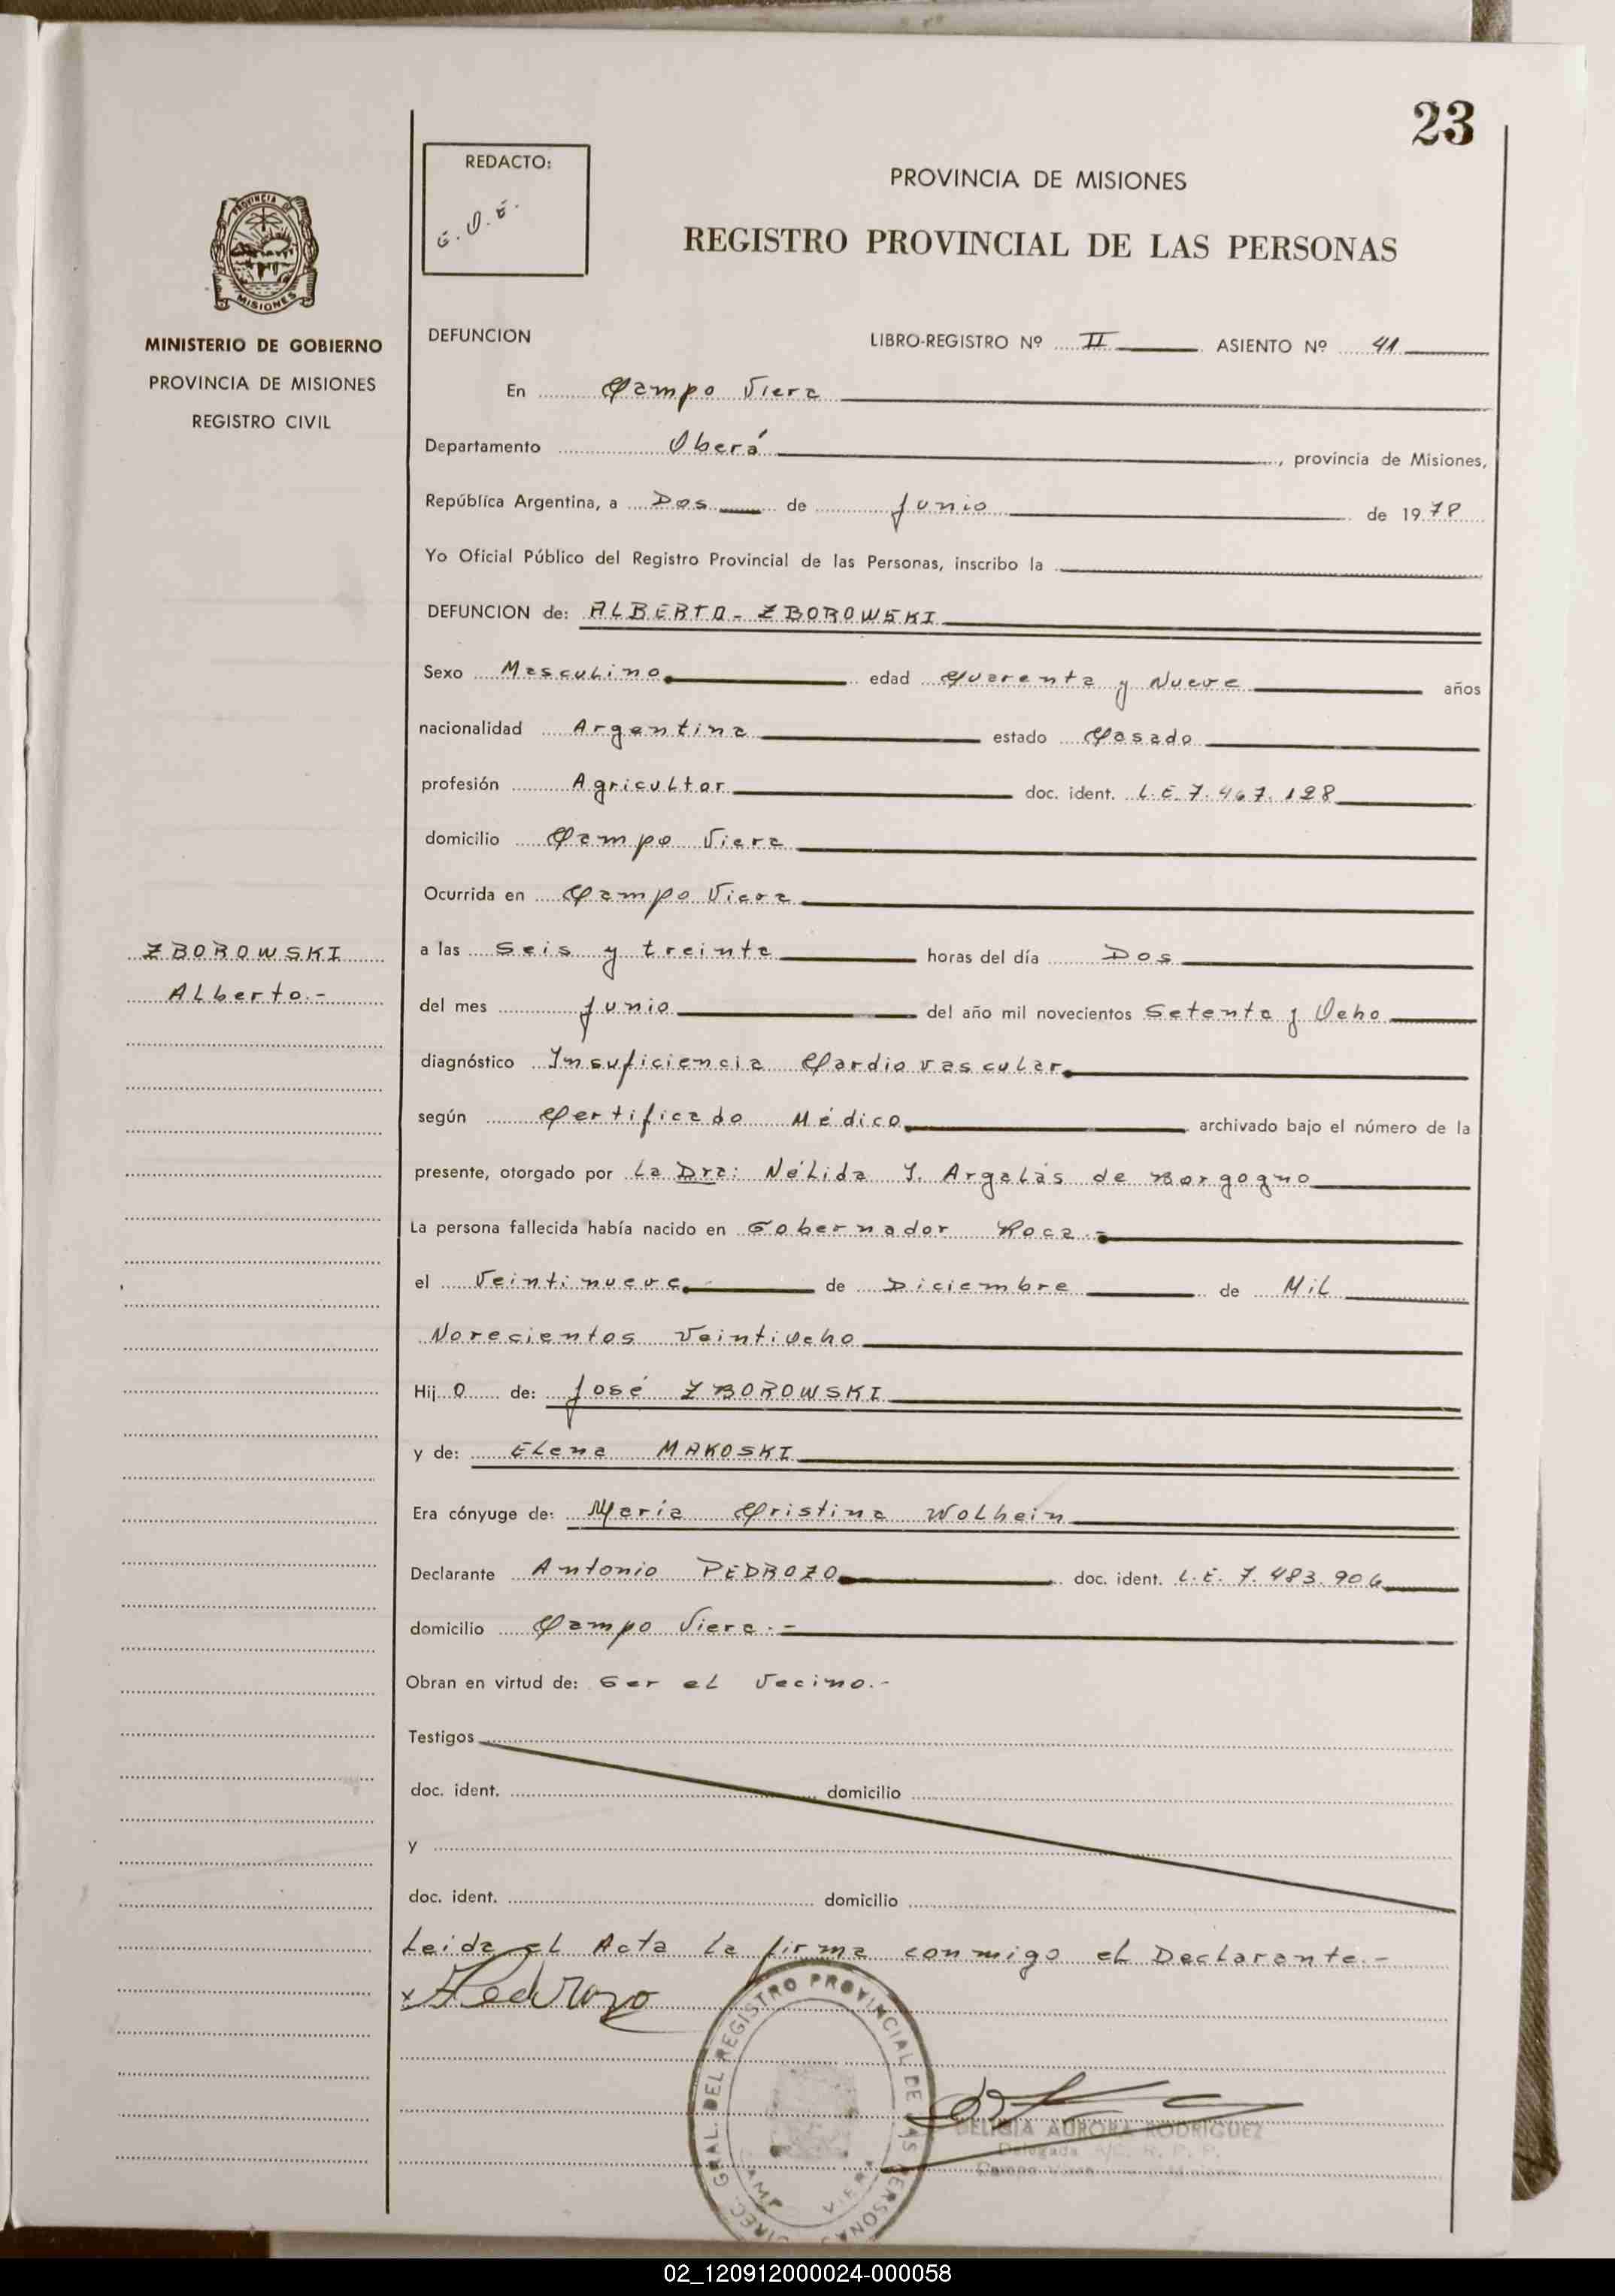 23
REDACTO:
G.O.E.
PROVINCIA DE MISIONES
REGISTRO PROVINCIAL DE LAS PERSONAS
PROVINCIA DE
MISIONES
MINISTERIO DE GOBIERNO
PROVINCIA DE MISIONES
REGISTRO CIVIL
DEFUNCION LIBRO-REGISTRO Nº II ASIENTO Nº 41
En Campo Viera
Departamento Oberá, provincia de Misiones,
República Argentina, a Dos de Junio de 1978
Yo Oficial Público del Registro Provincial de las Personas, inscribo la
DEFUNCION de: ALBERTO - ZBOROWSKI
Sexo Masculino edad Cuarenta y Nueve años
nacionalidad Argentina estado Casado
profesión Agricultor doc. ident. L.E. 7.467.128
domicilio Campo Viera
Ocurrida en Campo Viera
ZBOROWSKI
Alberto.-
a las Seis y treinta horas del día Dos
del mes Junio del año mil novecientos Setenta y Ocho
diagnóstico Insuficiencia Cardiovascular
según Certificado Médico archivado bajo el número de la
presente, otorgado por La Dra: Nélida Y. Argalás de Borgogno
La persona fallecida había nacido en Gobernador Roca.-
el Veintinueve de Diciembre de Mil
Novecientos Veintiocho
Hijo de: José ZBOROWSKI
y de: Elena MAKOSKI
Era cónyuge de: María Cristina Wolhein
Declarante Antonio PEDROZO doc. ident. L.E. 7.483.906
domicilio Campo Viera.-
Obran en virtud de: Ser el Vecino.-
Testigos
doc. ident. domicilio
y
doc. ident. domicilio
Leida el Acta la firma conmigo el Declarante.-
x Pedrozo
DIREC. GRAL. DEL REGISTRO PROVINCIAL DE LAS PERSONAS
VIERA
DELIGIA AURORA RODRIGUEZ
Delegada R. P. P.
Campo Viera
02_120912000024-000058